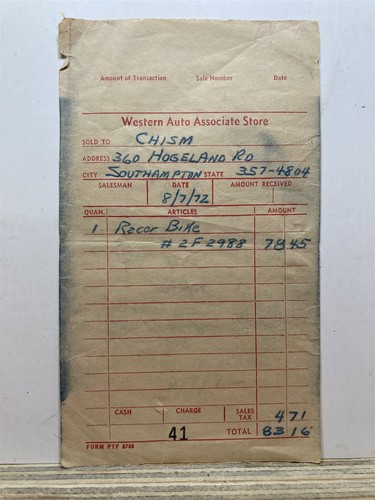 Amount of Transaction Sale Number Date
Western Auto Associate Store
SOLD TO CHISM
ADDRESS 360 HOGELAND RD
CITY SOUTHAMPTON STATE 357-4804
SALESMAN DATE AMOUNT RECEIVED
8/7/72
QUAN. ARTICLES AMOUNT
1 Racer Bike
# 2F2988 78 45
CASH CHARGE SALES TAX 4 71
41 TOTAL 83 16
FORM PTF 8788